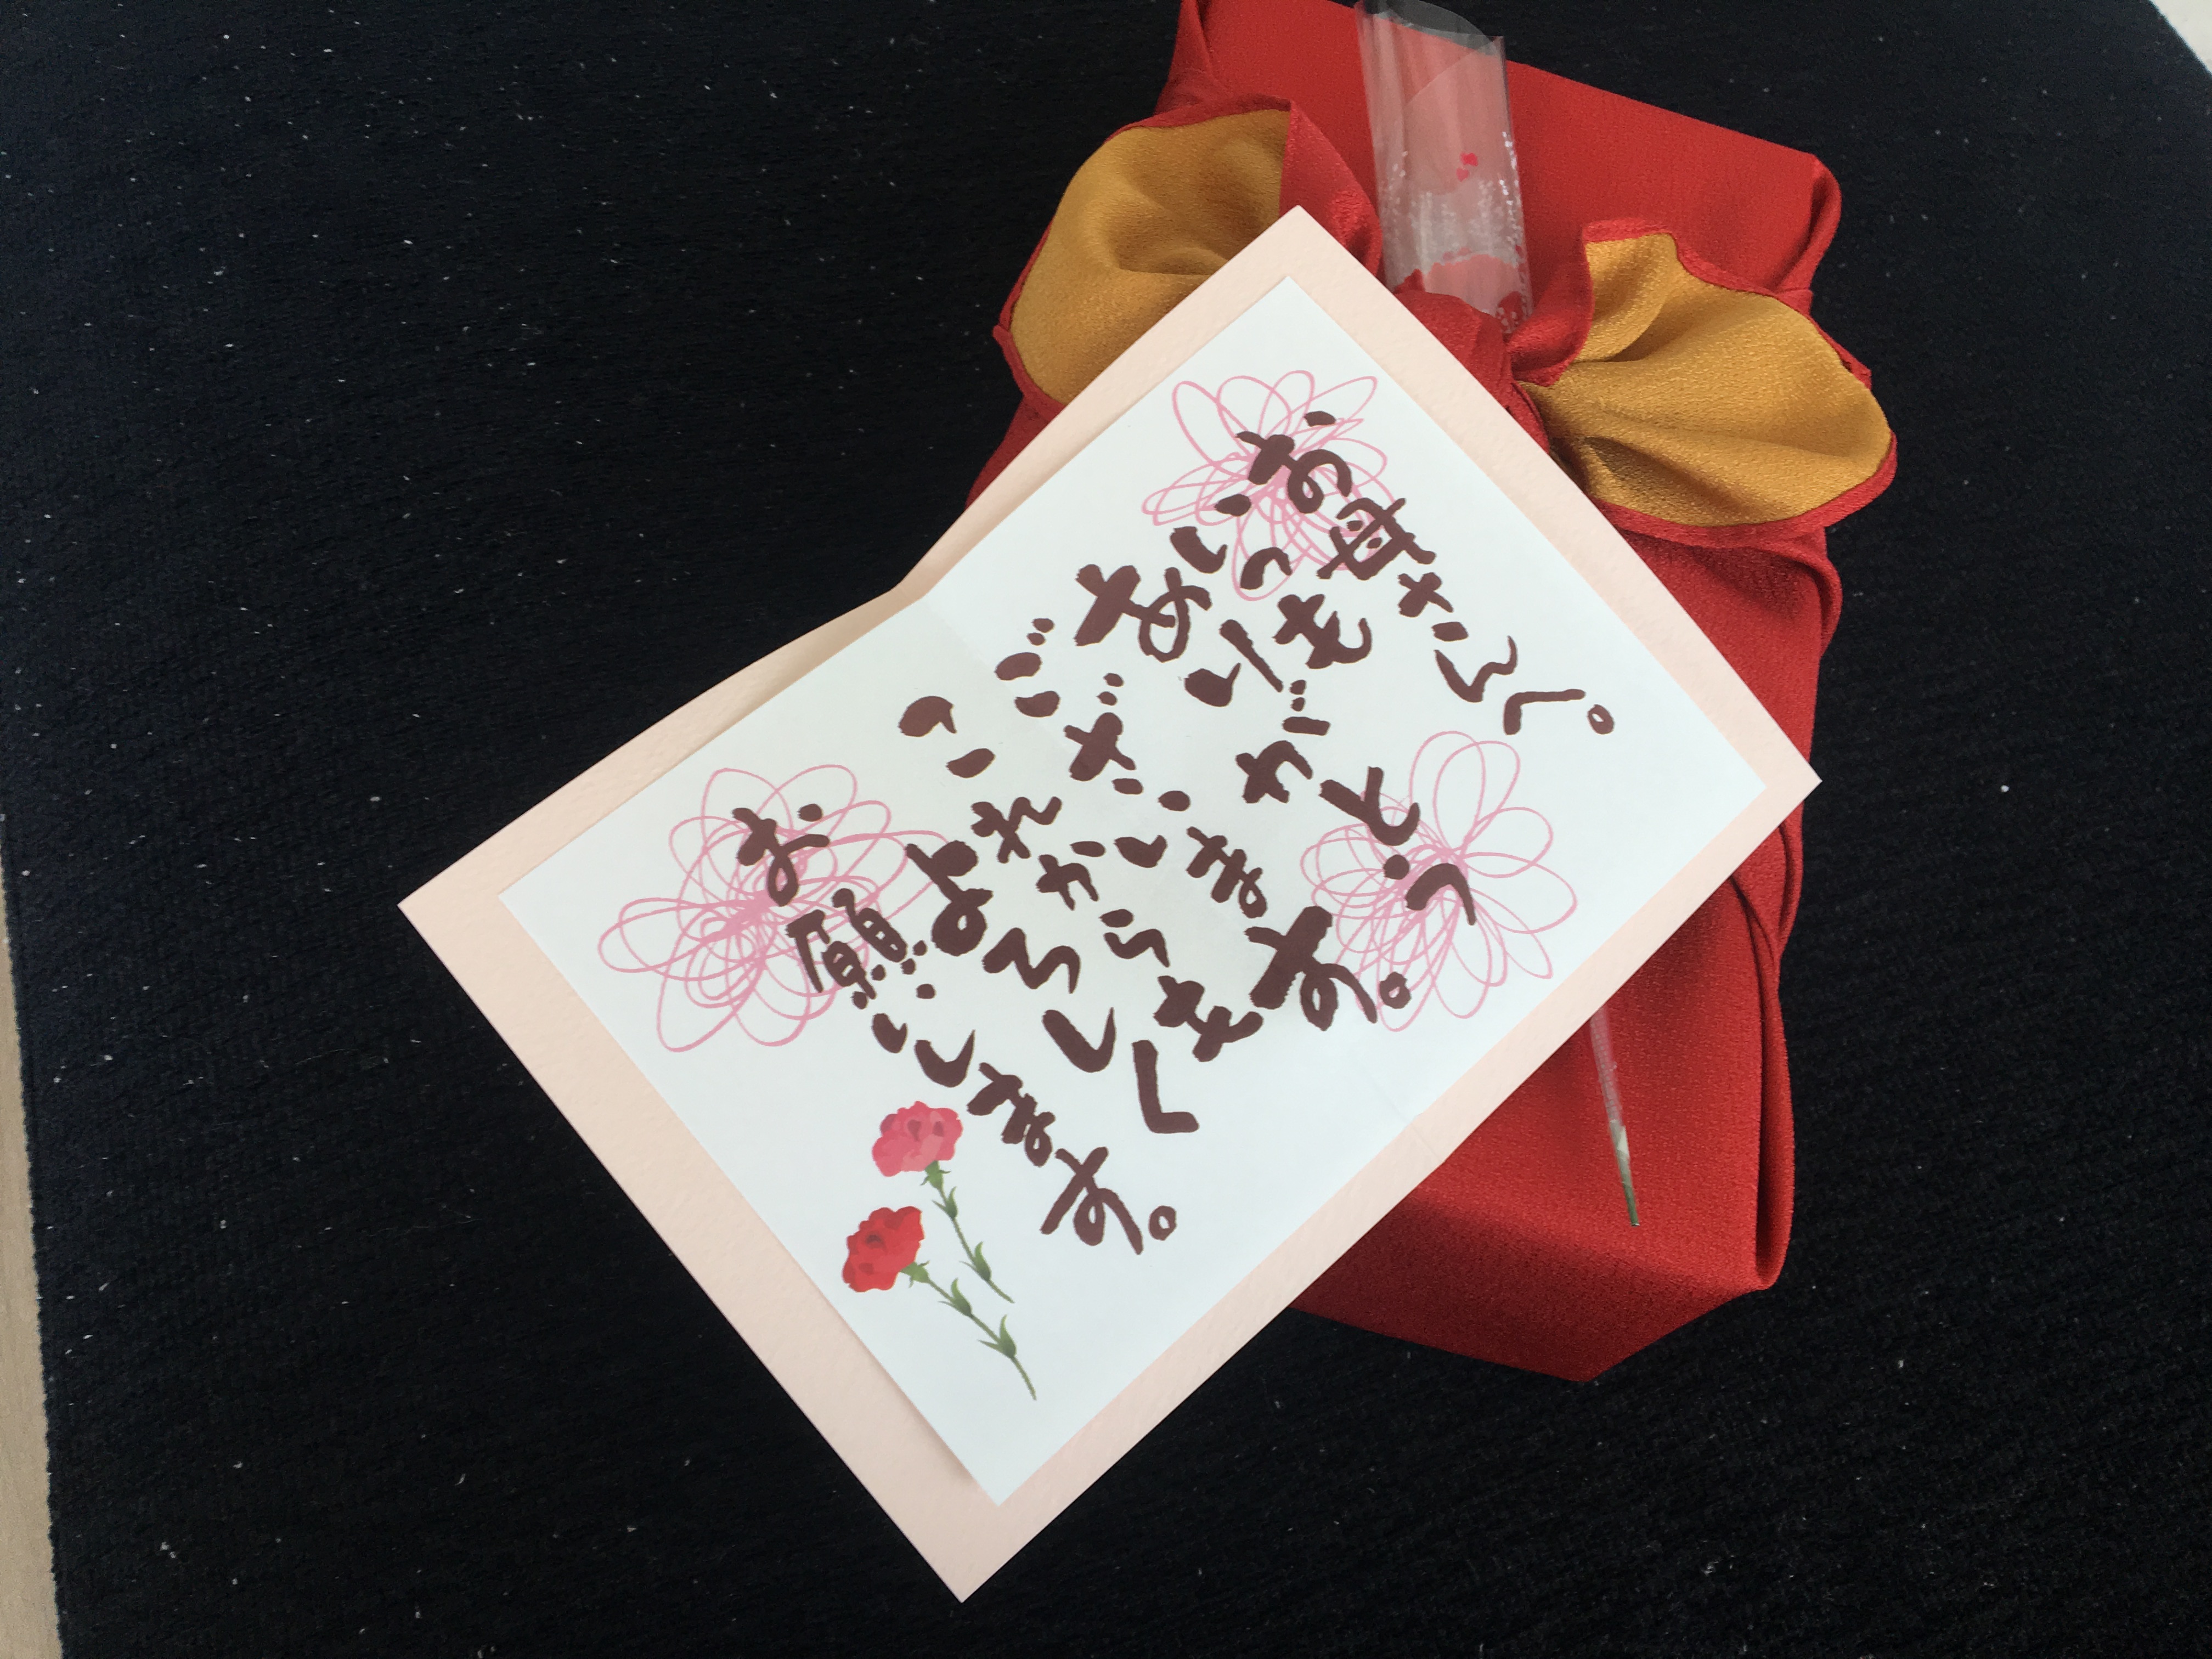 お母さんへ。
いつも
ありがとう
ございます。
これからも
よろしく
お願いします。